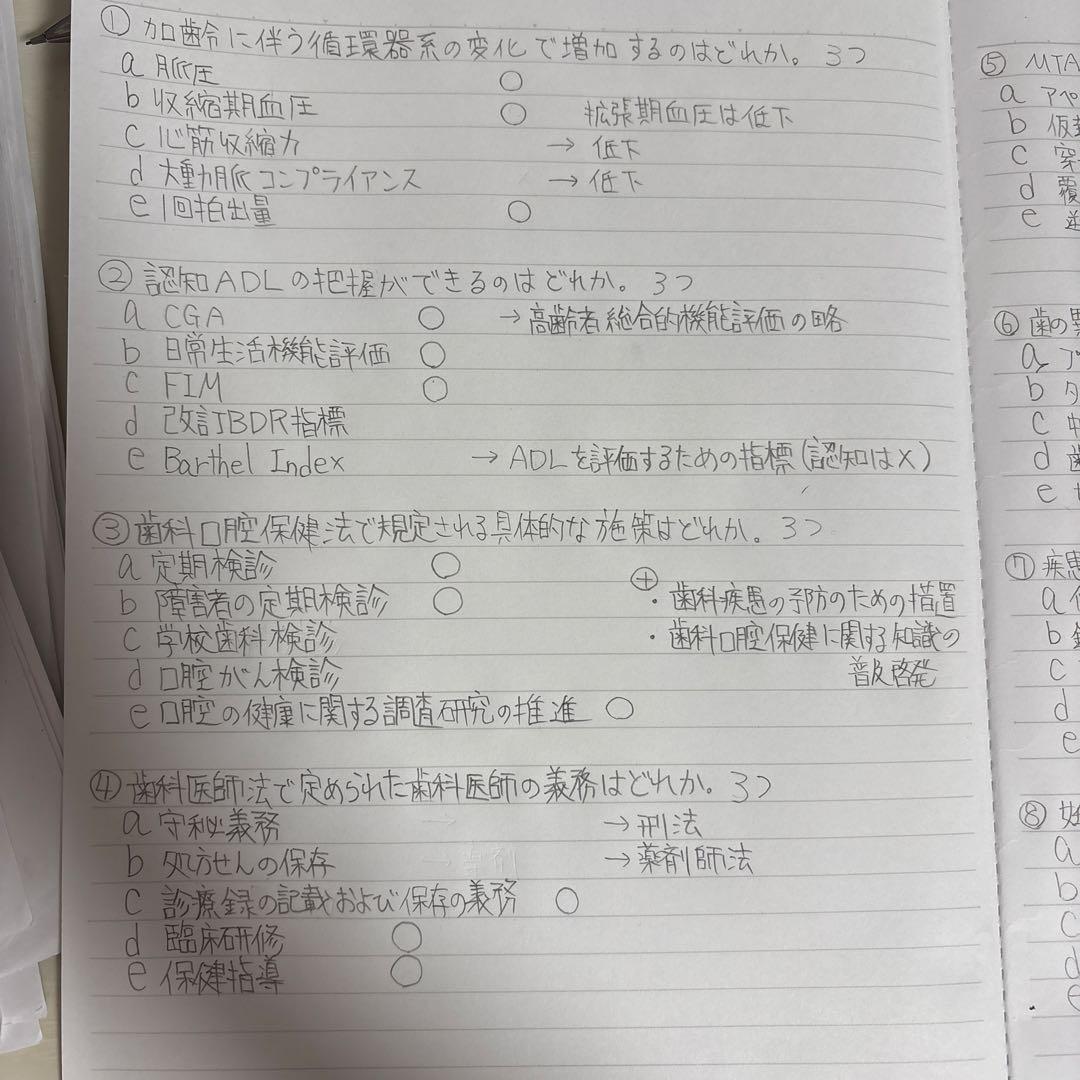 ① 加齢に伴う循環器系の変化で増加するのはどれか。3つ
a 脈圧 ○
b 収縮期血圧 ○ 拡張期血圧は低下
c 心筋収縮力 → 低下
d 大動脈コンプライアンス → 低下
e 1回拍出量 ○
② 認知ADLの把握ができるのはどれか。3つ
a CGA ○ → 高齢者総合的機能評価の略
b 日常生活機能評価 ○
c FIM ○
d 改訂JBDR指標
e Barthel Index → ADLを評価するための指標(認知は×)
③ 歯科口腔保健法で規定される具体的な施策はどれか。3つ
a 定期検診 ○
b 障害者の定期検診 ○
c 学校歯科検診
d 口腔がん検診
e 口腔の健康に関する調査研究の推進 ○
⊕
・歯科疾患の予防のための措置
・歯科口腔保健に関する知識の
普及啓発
④ 歯科医師法で定められた歯科医師の義務はどれか。3つ
a 守秘義務 → 刑法
b 処方せんの保存 → 薬剤師法
c 診療録の記載および保存の義務 ○
d 臨床研修 ○
e 保健指導 ○
⑤ MTA
a アペ
b 仮
c 穿
d 覆
e 逆
⑥ 歯の異
a
b
c
d 歯
e
⑦ 疾患
a
b
c
d
e
⑧ 妊
a
b
c
d
e